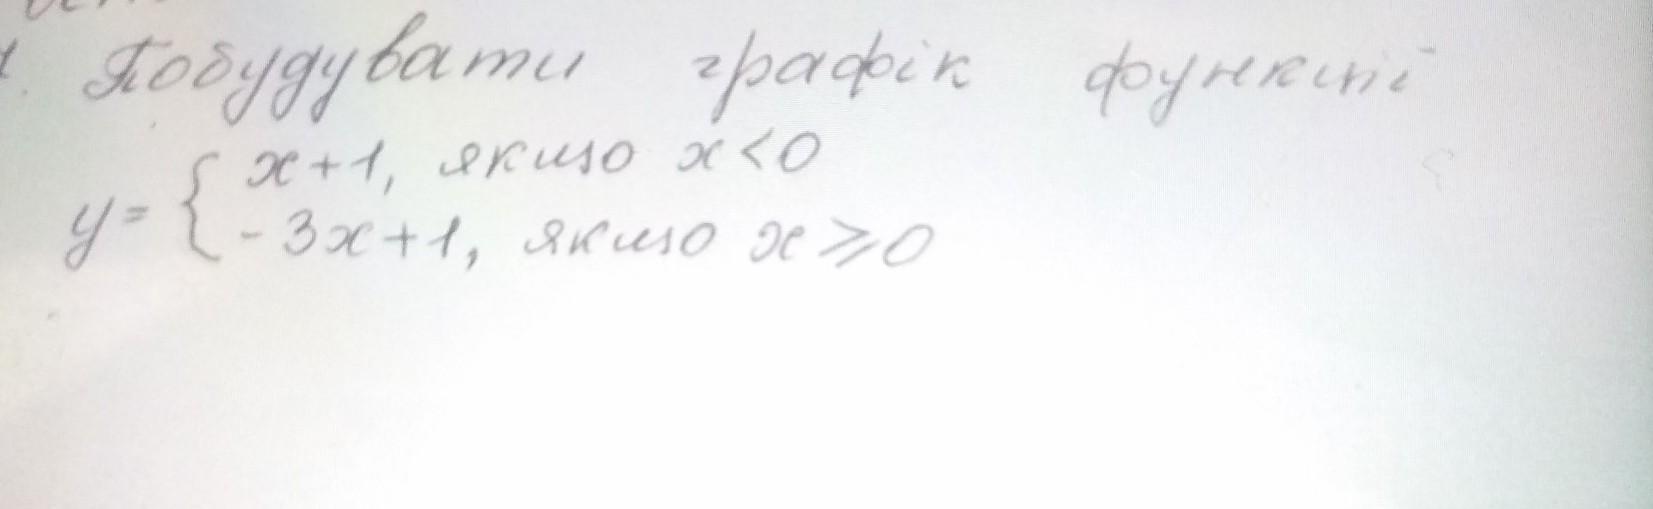 1. Побудувати графік функції
y = { x+1, якщо x<0
-3x+1, якщо x⩾0